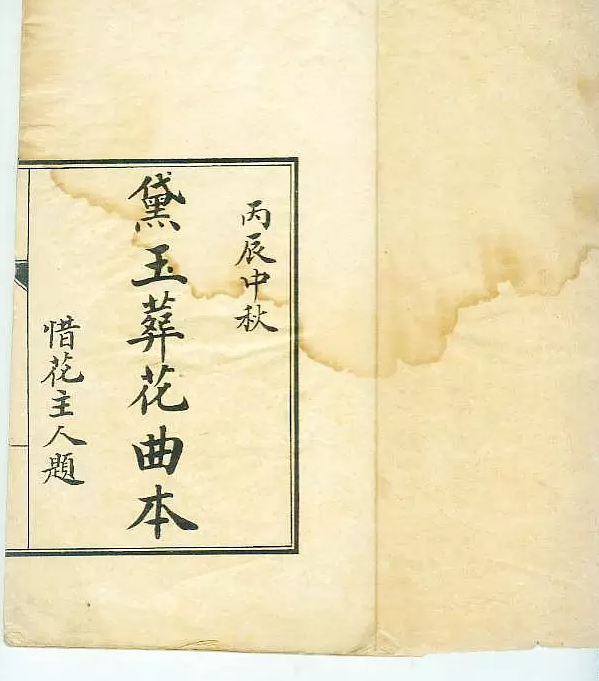 丙辰中秋
黛玉葬花曲本
惜花主人題